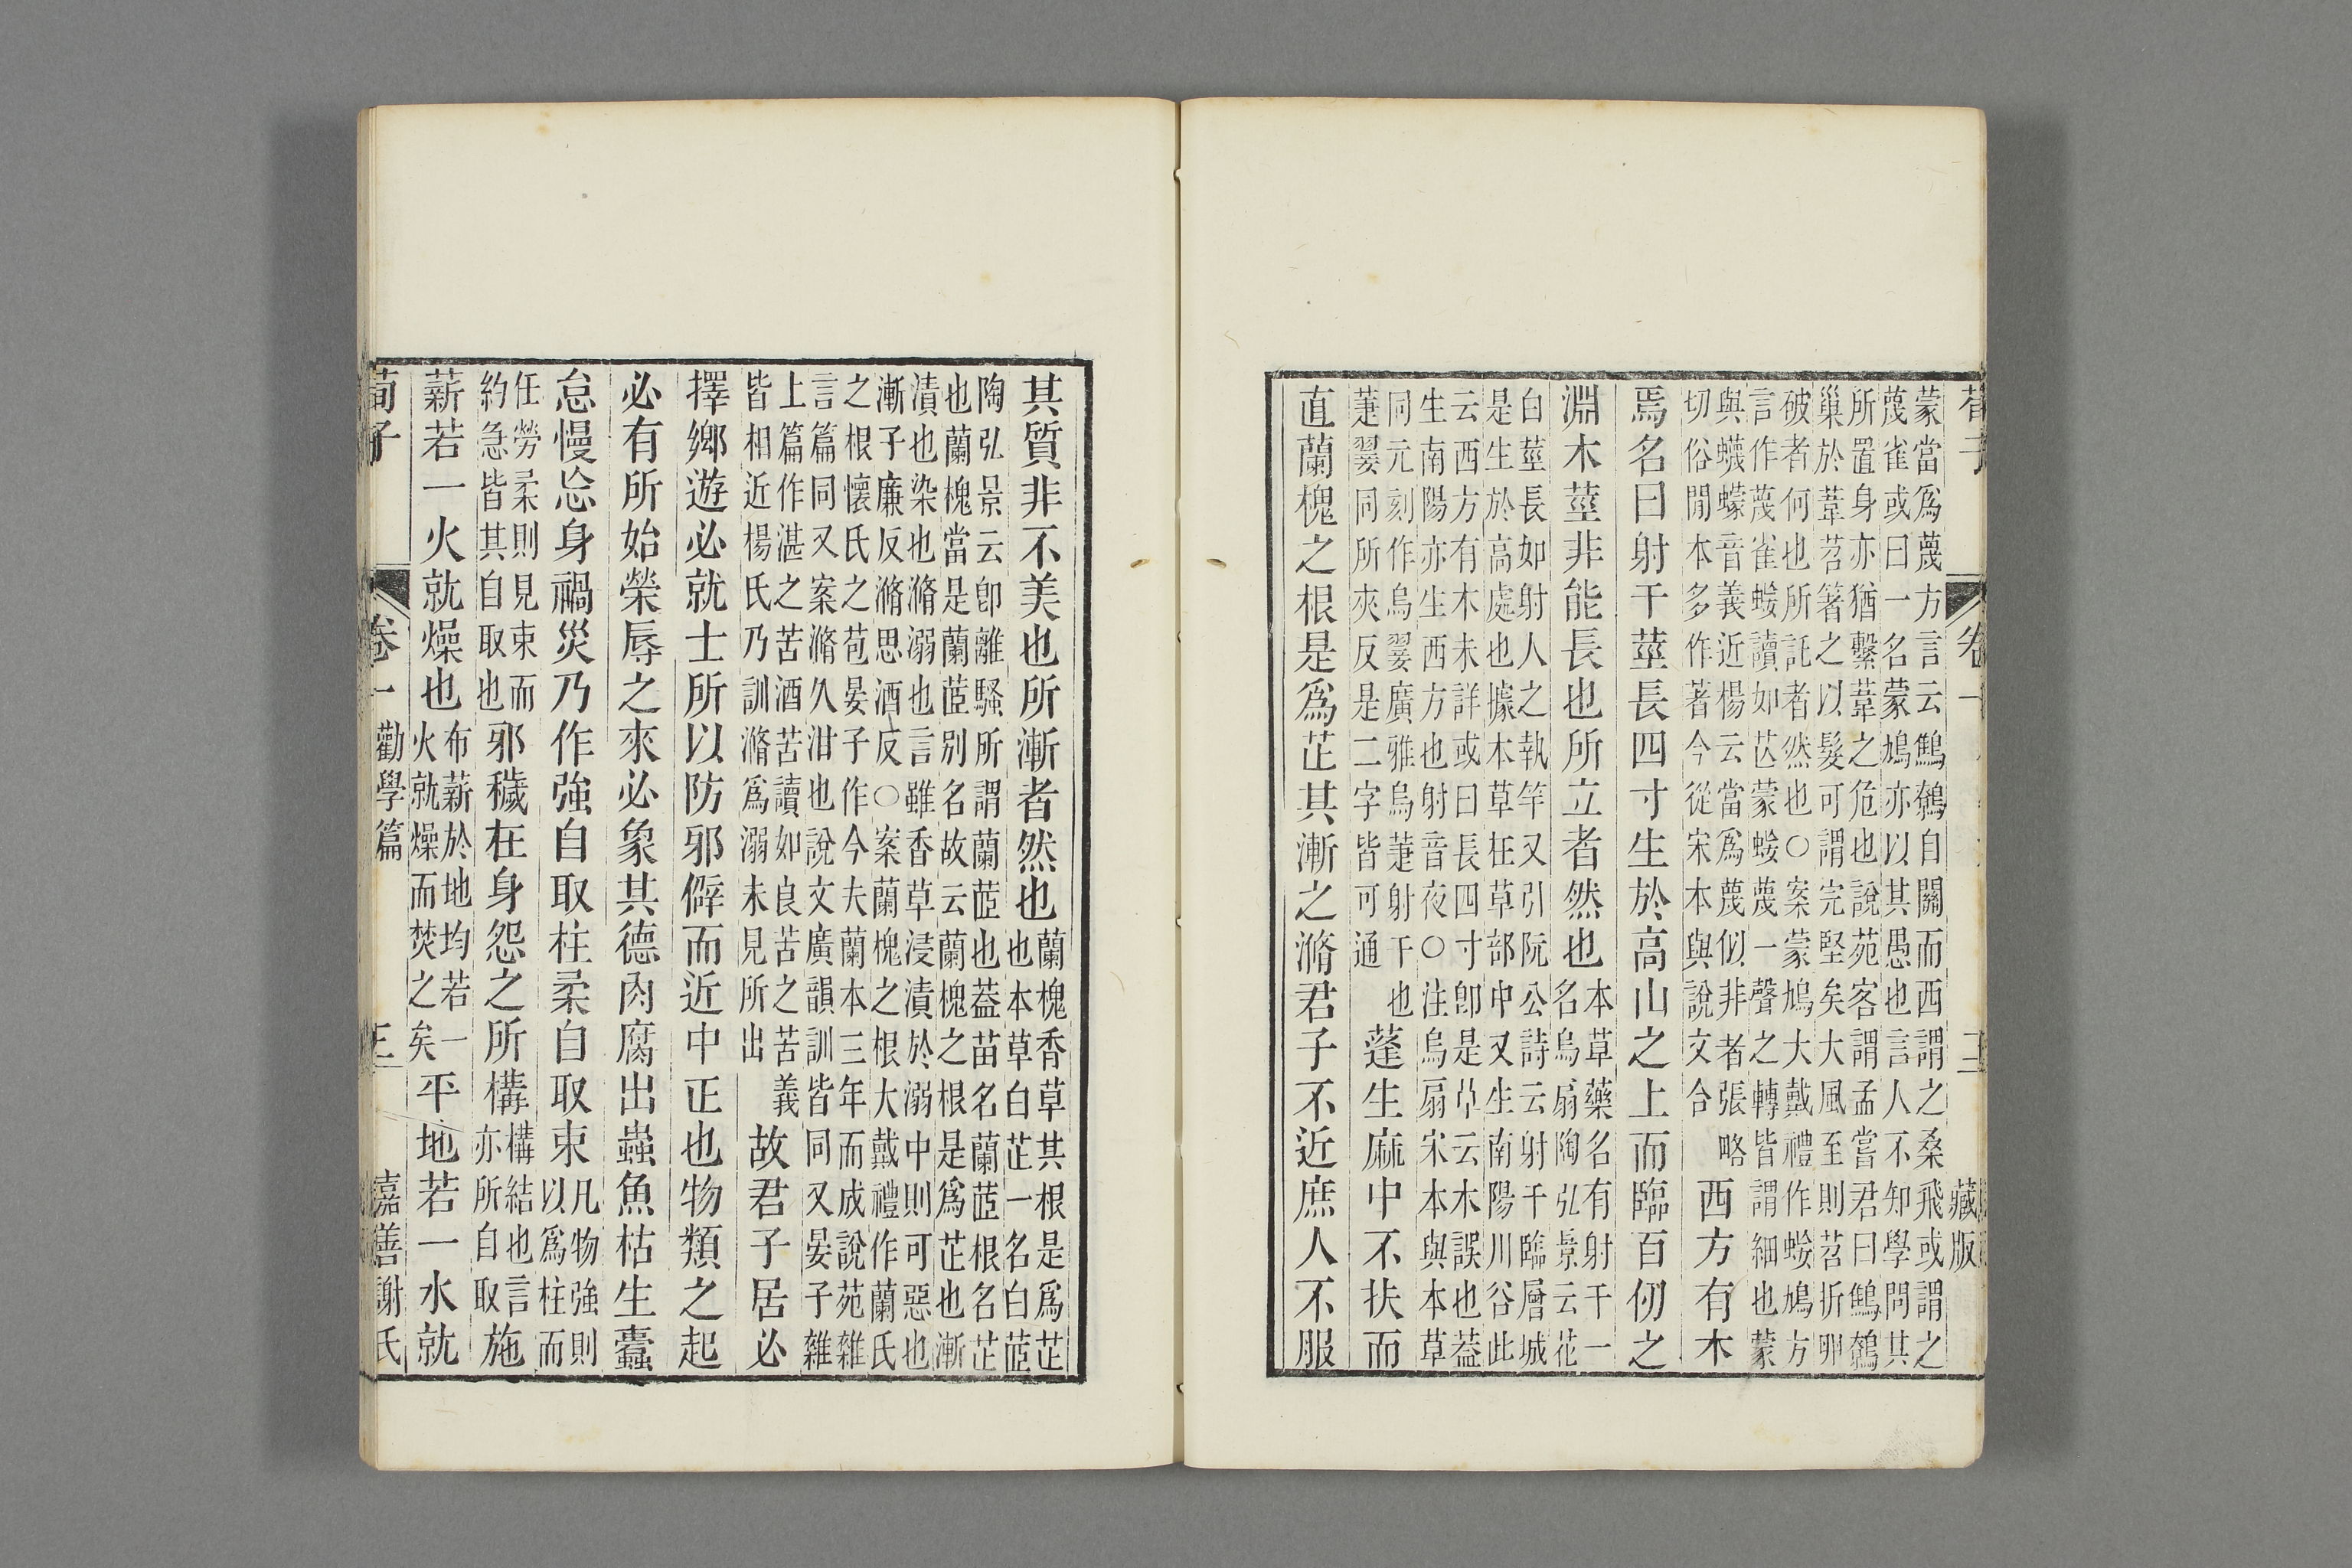 荀子 卷一 二 藏版
蒙當爲蔑方言云鷦鷯自關而西謂之桑飛或謂之
蔑雀或曰一名蒙鳩亦以其愚也言人不知學問其
所置身亦猶繫葦之危也說苑客謂孟嘗君曰鷦鷯
巢於葦苕箸之以髮可謂完堅矣大風至則苕折卵
破者何也所託者然也○案蒙鳩大戴禮作䗥鳩方
言作蔑雀䗥讀如芘蒙䗥蔑一聲之轉皆謂細也蒙
與蠛蠓音義近楊云當爲蔑似非者張略
切俗閒本多作著今從宋本與說文合
西方有木
焉名曰射干莖長四寸生於高山之上而臨百仞之
淵木莖非能長也所立者然也
本草藥名有射干一
名烏扇陶弘景云花
白莖長如射人之執竿又引阮公詩云射干臨層城
是生於高處也據本草在草部中又生南陽川谷此
云西方有木未詳或曰長四寸卽是艸云木誤也蓋
生南陽亦生西方也射音夜○注烏扇宋本與本草
同元刻作烏翣廣雅烏萐射干也
萐翣同所夾反是二字皆可通
蓬生麻中不扶而
直蘭槐之根是爲芷其漸之滫君子不近庶人不服
其質非不美也所漸者然也
蘭槐香草其根是爲芷
也本草白芷一名白茝
陶弘景云卽離騷所謂蘭茝也蓋苗名蘭茝根名芷
也蘭槐當是蘭茝別名故云蘭槐之根是爲芷也漸
漬也染也滫溺也言雖香草浸漬於溺中則可惡也
漸子廉反滫思酒反○案蘭槐之根大戴禮作蘭氏
之根懷氏之苞晏子作今夫蘭本三年而成說苑雜
言篇同又案滫久泔也說文廣韻訓皆同又晏子雜
上篇作湛之苦酒苦讀如良苦之苦義
皆相近楊氏乃訓滫爲溺未見所出
故君子居必
擇鄉遊必就士所以防邪僻而近中正也物類之起
必有所始榮辱之來必象其德肉腐出蟲魚枯生蠹
怠慢忘身禍災乃作強自取柱柔自取束
凡物強則
以爲柱而
任勞柔則見束而
約急皆其自取也
邪穢在身怨之所構
構結也言
亦所自取
施
薪若一火就燥也
布薪於地均若一
火就燥而焚之矣
平地若一水就
荀子 卷一 勸學篇 三 嘉善謝氏